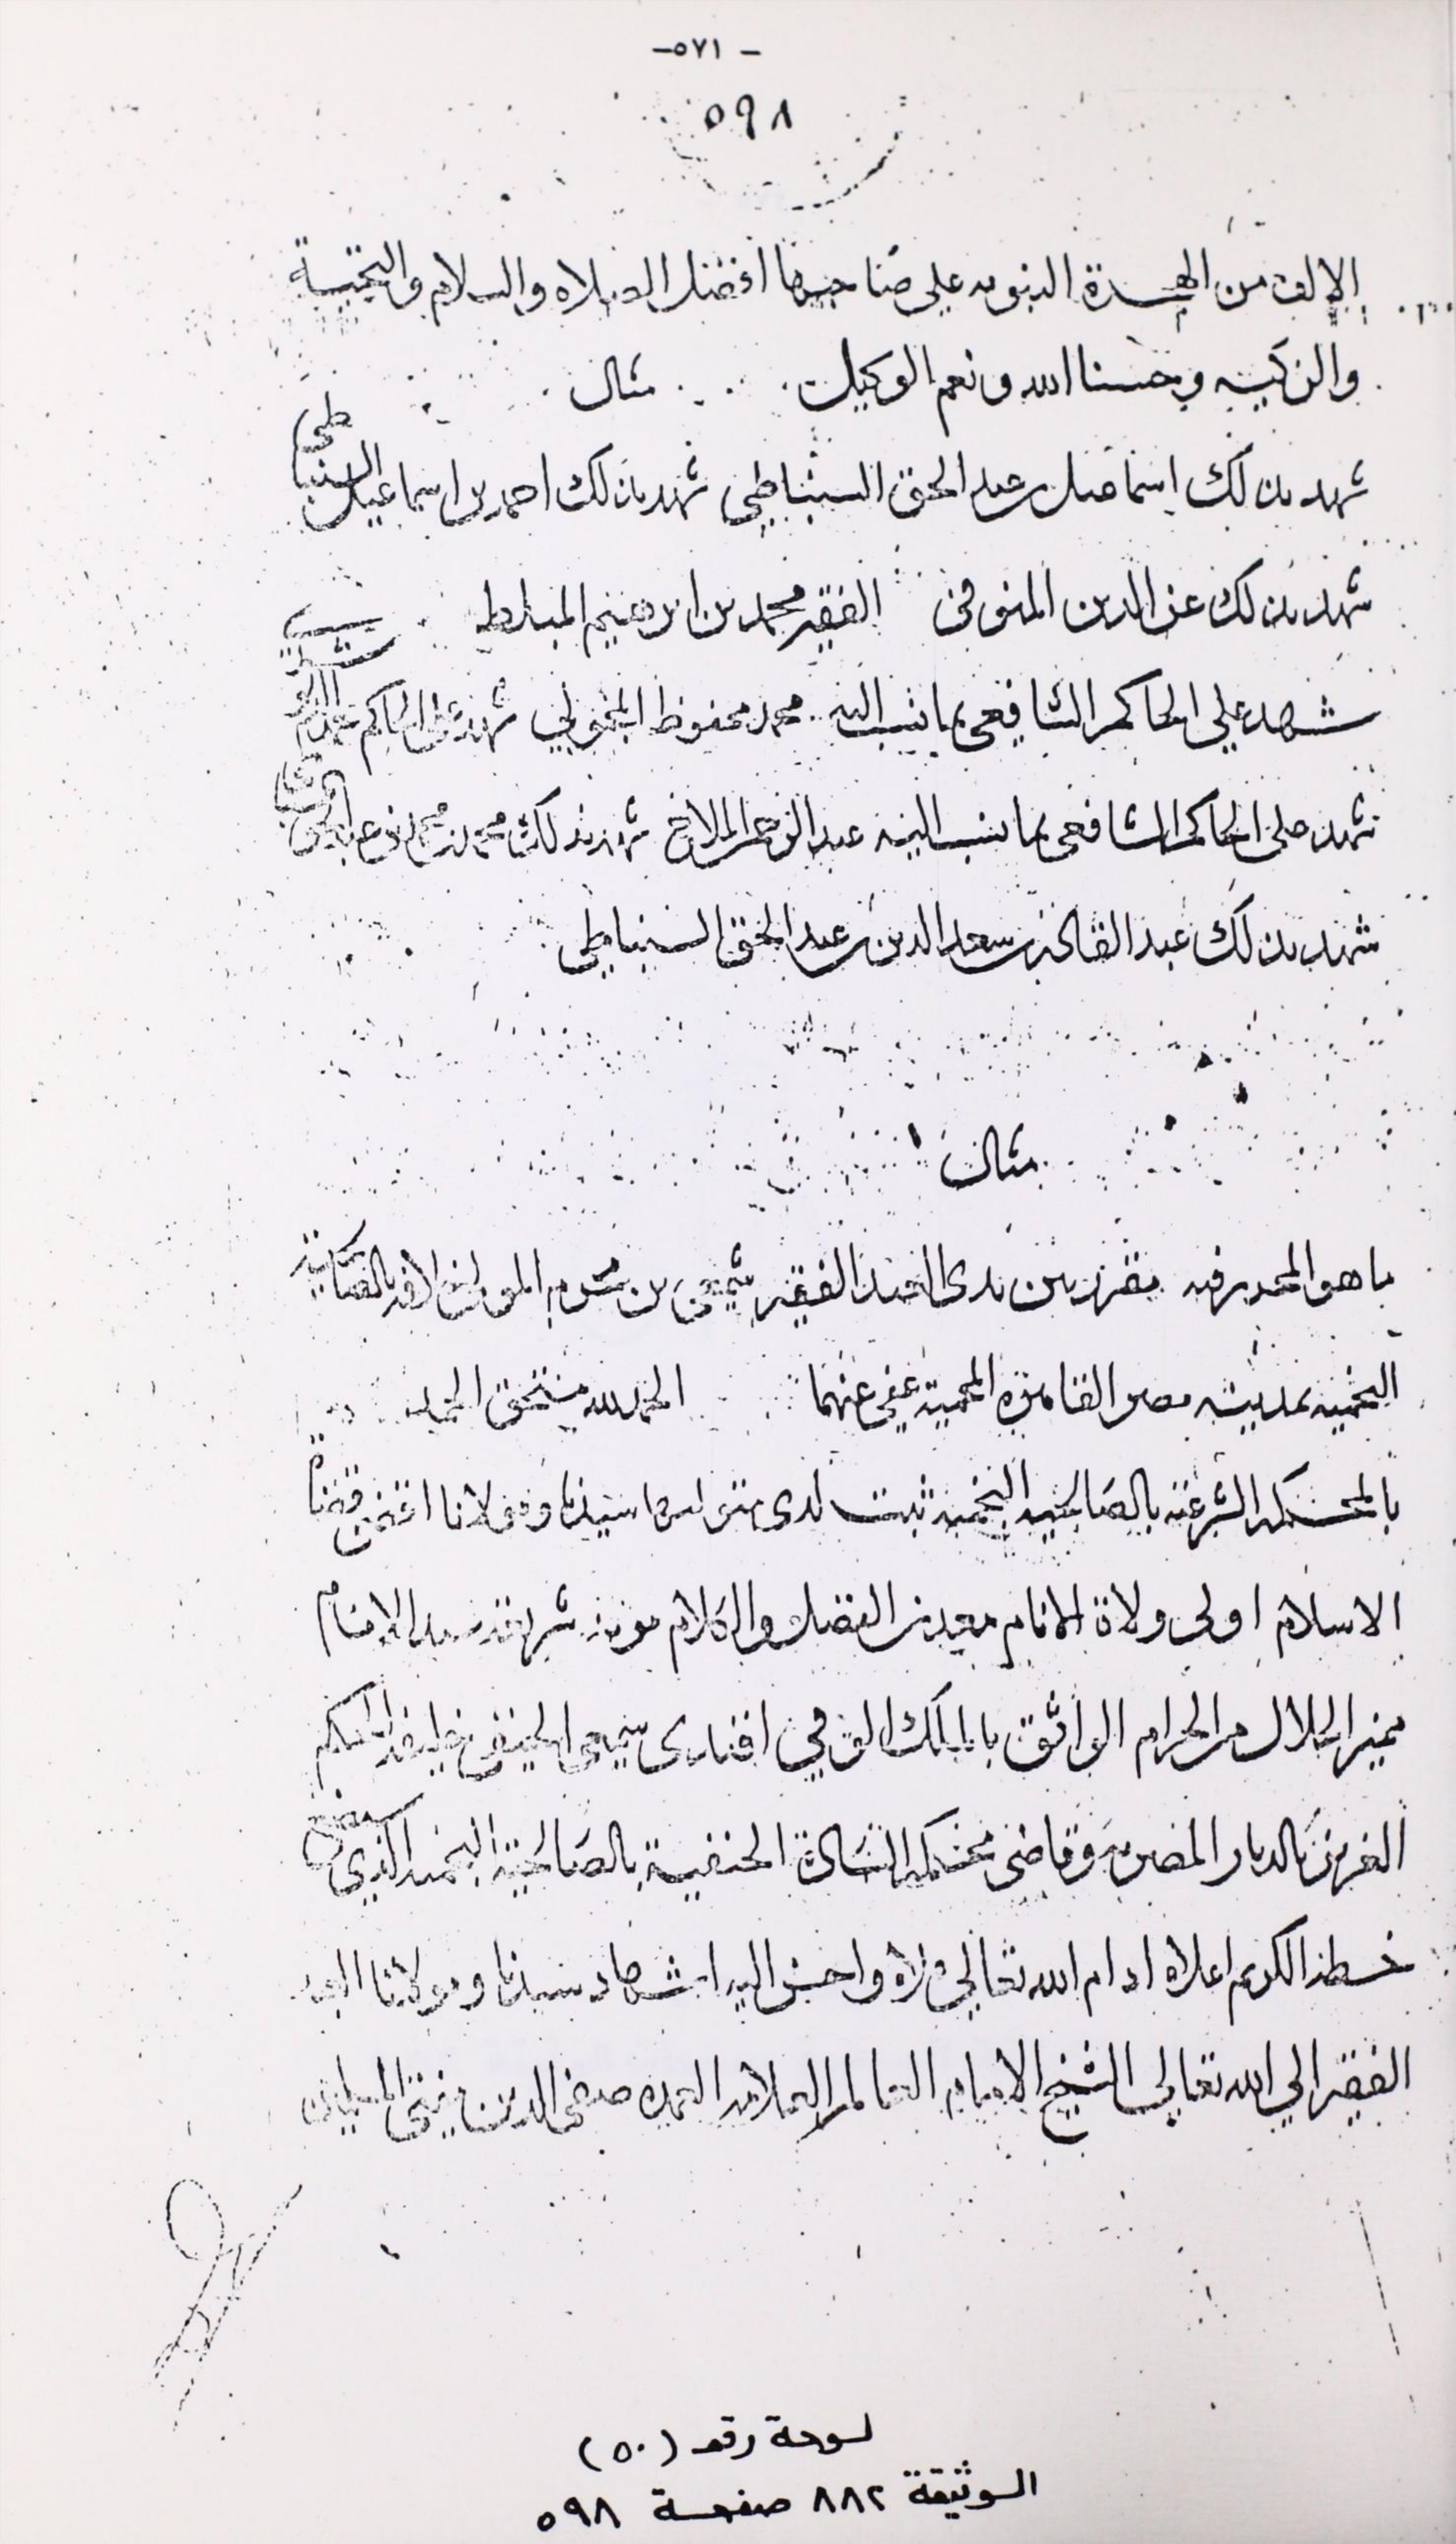 -٥٧١-
٥٩٨
الالف من الهجرة النبويه على صاحبها افضل الصلاه والسلام والتحية
والزكيه وحسبنا الله ونعم الوكيل مثال
شهد بذلك اسماعيل بن عبد الحق السنباطي شهد بذلك احمد بن اسماعيل السنباطي
شهد بذلك عز الدين المنوفى الفقير محمد بن ابرهيم
شهد على الحاكم الشافعى بما نسب اليه محمد محفوظ شهد على الحاكم
شهد على الحاكم الشافعى بما نسب اليه عبد الرحمن شهد بذلك محمد بن محمد
شهد بذلك عبد القادر بن سعد الدين بن عبد الحق السنباطى
مثال
ما هو المحرر فيه بين يدى العبد الفقير بن محرم المولى خلافه بالصالحية
النجميه بمدينة مصر القاهرة المحمية عفى عنهما الحمد لله مستحق الحمد
بالمحكمه الشرعيه بالصالحيه النجميه ثبت لدى متوليها سيدنا ومولانا اقضى قضاة
الاسلام اولى ولاة الانام معدن الفضل والكلام شريعة سيد الانام
مميز الحلال من الحرام الواثق بالملك افندى الحنفى خليفه الحكم
العزيز بالديار المصريه وقاضى محكمة السادة الحنفية بالصالحية النجميه الذى
خطه الكريم اعلاه ادام الله تعالى علاه واحسن اليه اشهاد سيدنا ومولانا العبد
الفقير الى الله تعالى الشيخ الامام العالم العلامه العمده صفى الدين مفتى المسلمين
لوحة رقم (٥٠)
الوثيقة ٨٨٢ صفحة ٥٩٨